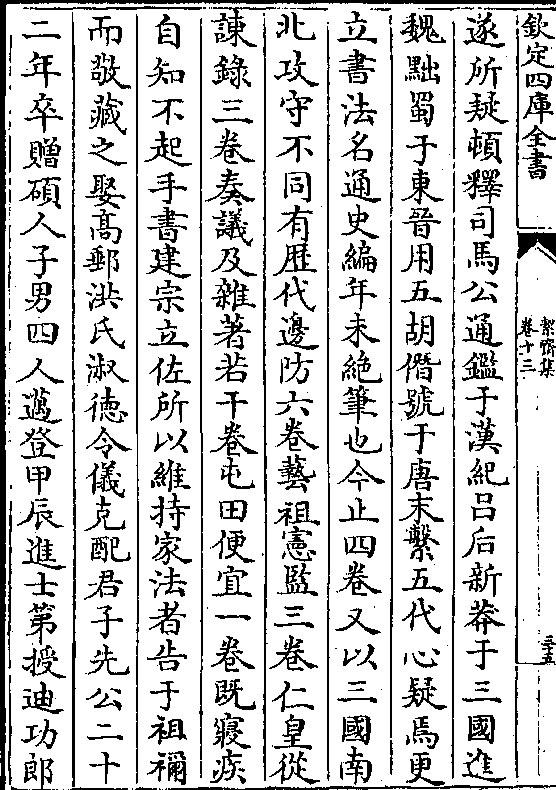 欽定四庫全書
絜齋集
卷十三
三五
遂所疑頓釋司馬公通鑑于漢紀吕后新莽于三國進
魏黜蜀于東晉用五胡僭號于唐末繫五代心疑焉更
立書法名通史編年未絶筆也今止四卷又以三國南
北攻守不同有歴代邊防六卷藝祖憲監三卷仁皇從
諫錄三卷奏議及雜著若干卷屯田便宜一卷既寢疾
自知不起手書建宗立佐所以維持家法者告于祖禰
而敬藏之娶髙郵洪氏淑徳令儀克配君子先公二十
二年卒贈碩人子男四人邁登甲辰進士第授迪功郎